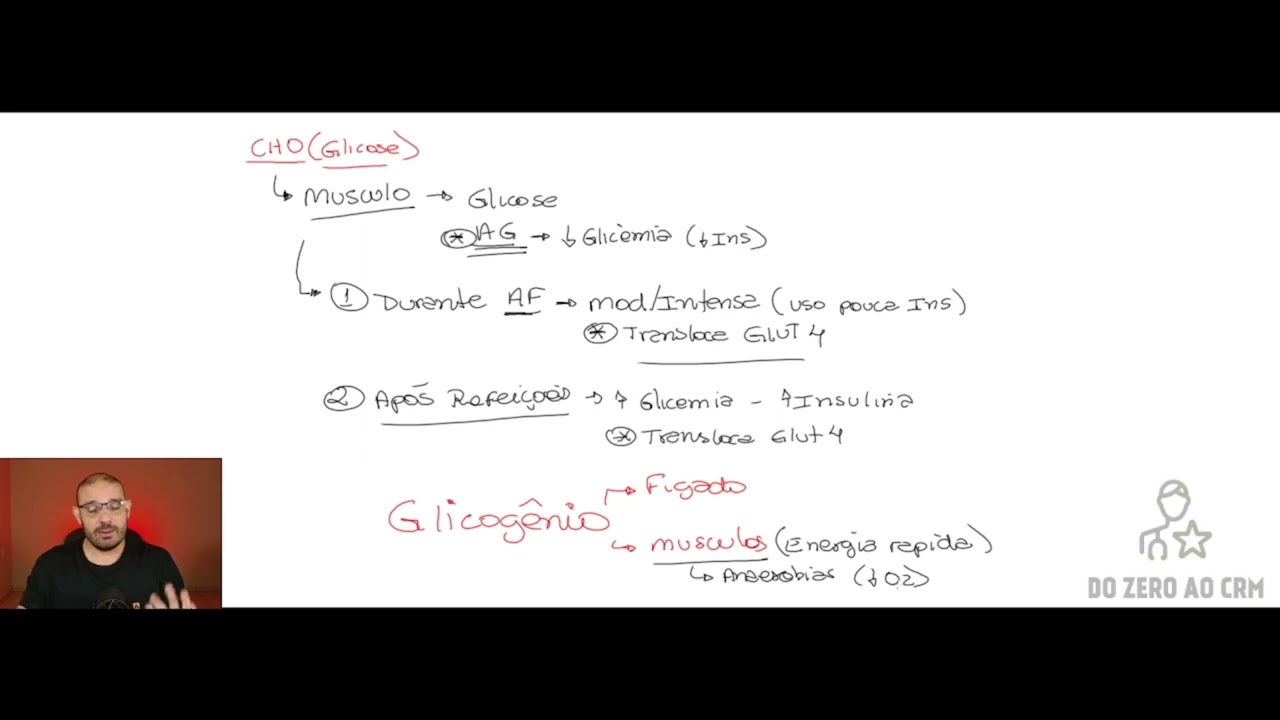 CHO (Glicose)
↳ Musculo → Glicose
* AG → ↓ Glicemia (↓ Ins)
① Durante AF → mod/Intensa (uso pouca Ins)
* Transloca GLUT 4
② Após Refeições → ↑ Glicemia - ↑ Insulina
* Transloca Glut 4
Glicogênio → Figado
↳ musculos (Energia rapida)
↳ Anaerobias (↓ O2)
DO ZERO AO CRM